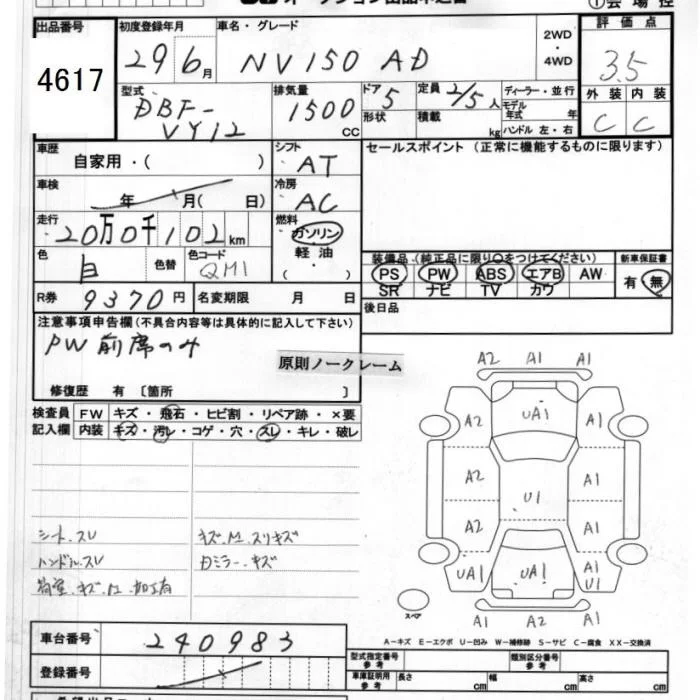 出品番号
4617
初度登録年月
29 6月
車名・グレード
NV150 AD
2WD
・
4WD
評価点
3.5
外装 内装
C C
型式
DBF-
VY12
排気量
1500
CC
ドア
5
形状
定員
2/5人
積載
kg
ディーラー・並行
モデル
年式 年
ハンドル 左・右
車歴
自家用・( )
シフト
AT
セールスポイント (正常に機能するものに限ります)
車検
年 月( 日)
冷房
AC
走行
20万0千102km
燃料
ガソリン
軽油
( ・ )
色
白
色替
色コード
QM1
装備品(純正品に限り○をつけてください)
PS PW ABS エアB AW
SR ナビ TV カワ
新車保証書
有・無
R券 9370円
名変期限 月 日
後日品
注意事項申告欄(不具合内容等は具体的に記入して下さい)
PW前席のみ
原則ノークレーム
修復歴 有 〔箇所 〕
検査員
記入欄
FW キズ・飛石・ヒビ割・リペア跡・×要
内装 キズ・汚レ・コゲ・穴・スレ・キレ・破レ
シート.スレ
ハンドル.スレ
荷室.キズ.
加工有
キズ.
スリキズ
ミラー.キズ
A2 A1 A1
A2 UA1 A1
A2 A1
U1
A2 A1
UA1 UA1 A1
U1
A1 A2 A1
スペア
A-キズ E-エクボ U-凹み W-補修跡 S-サビ C-腐食 XX-交換済
車台番号 240983
登録番号
型式指定番号
参考
類別区分番号
参考
車庫証明用
参考
長さ cm 幅 cm 高さ cm